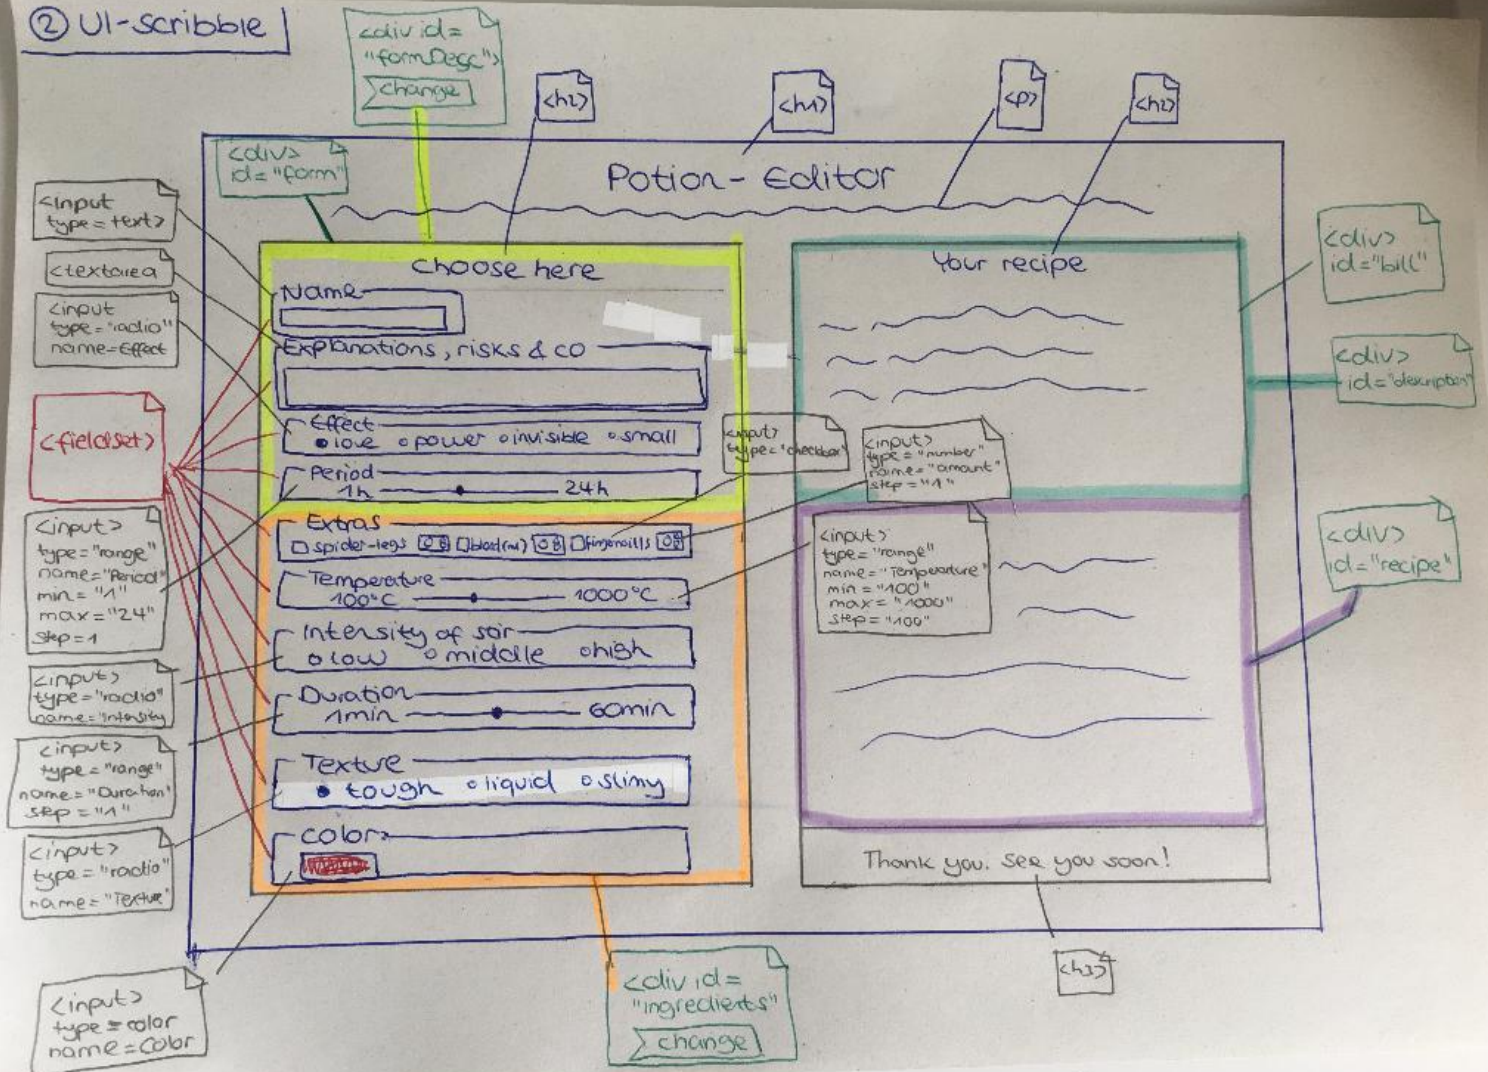 ② UI-scribble
<div id=
"formDesc">
change
<h2>
<h1>
<p>
<h2>
<div>
id="form"
Potion-Editor
<input
type=text>
<textarea
<input
type="radio"
name=Effect
<fieldset>
<input>
type="range"
name="Period"
min="1"
max="24"
step=1
<input>
type="radio"
name="Intensity
<input>
type="range"
name="Duration"
step="1"
<input>
type="radio"
name="Textur
<input>
type=color
name=Color
choose here
Name
Explanations, risks & co
Effect
love power invisible small
Period
1h 24h
Extras
spider-legs
Temperature
100°C 1000°C
Intensity of stir
low middle high
Duration
1min 60min
Texture
tough liquid slimy
color
<input>
type="checkbox"
<input>
type="number"
name="amount"
step="1"
<input>
type="range"
name="Temperature"
min="100"
max="1000"
step="100"
Your recipe
Thank you. See you soon!
<div>
id="bill"
<div>
id="description"
<div>
id="recipe"
<h3>
<div id=
"ingredients"
change